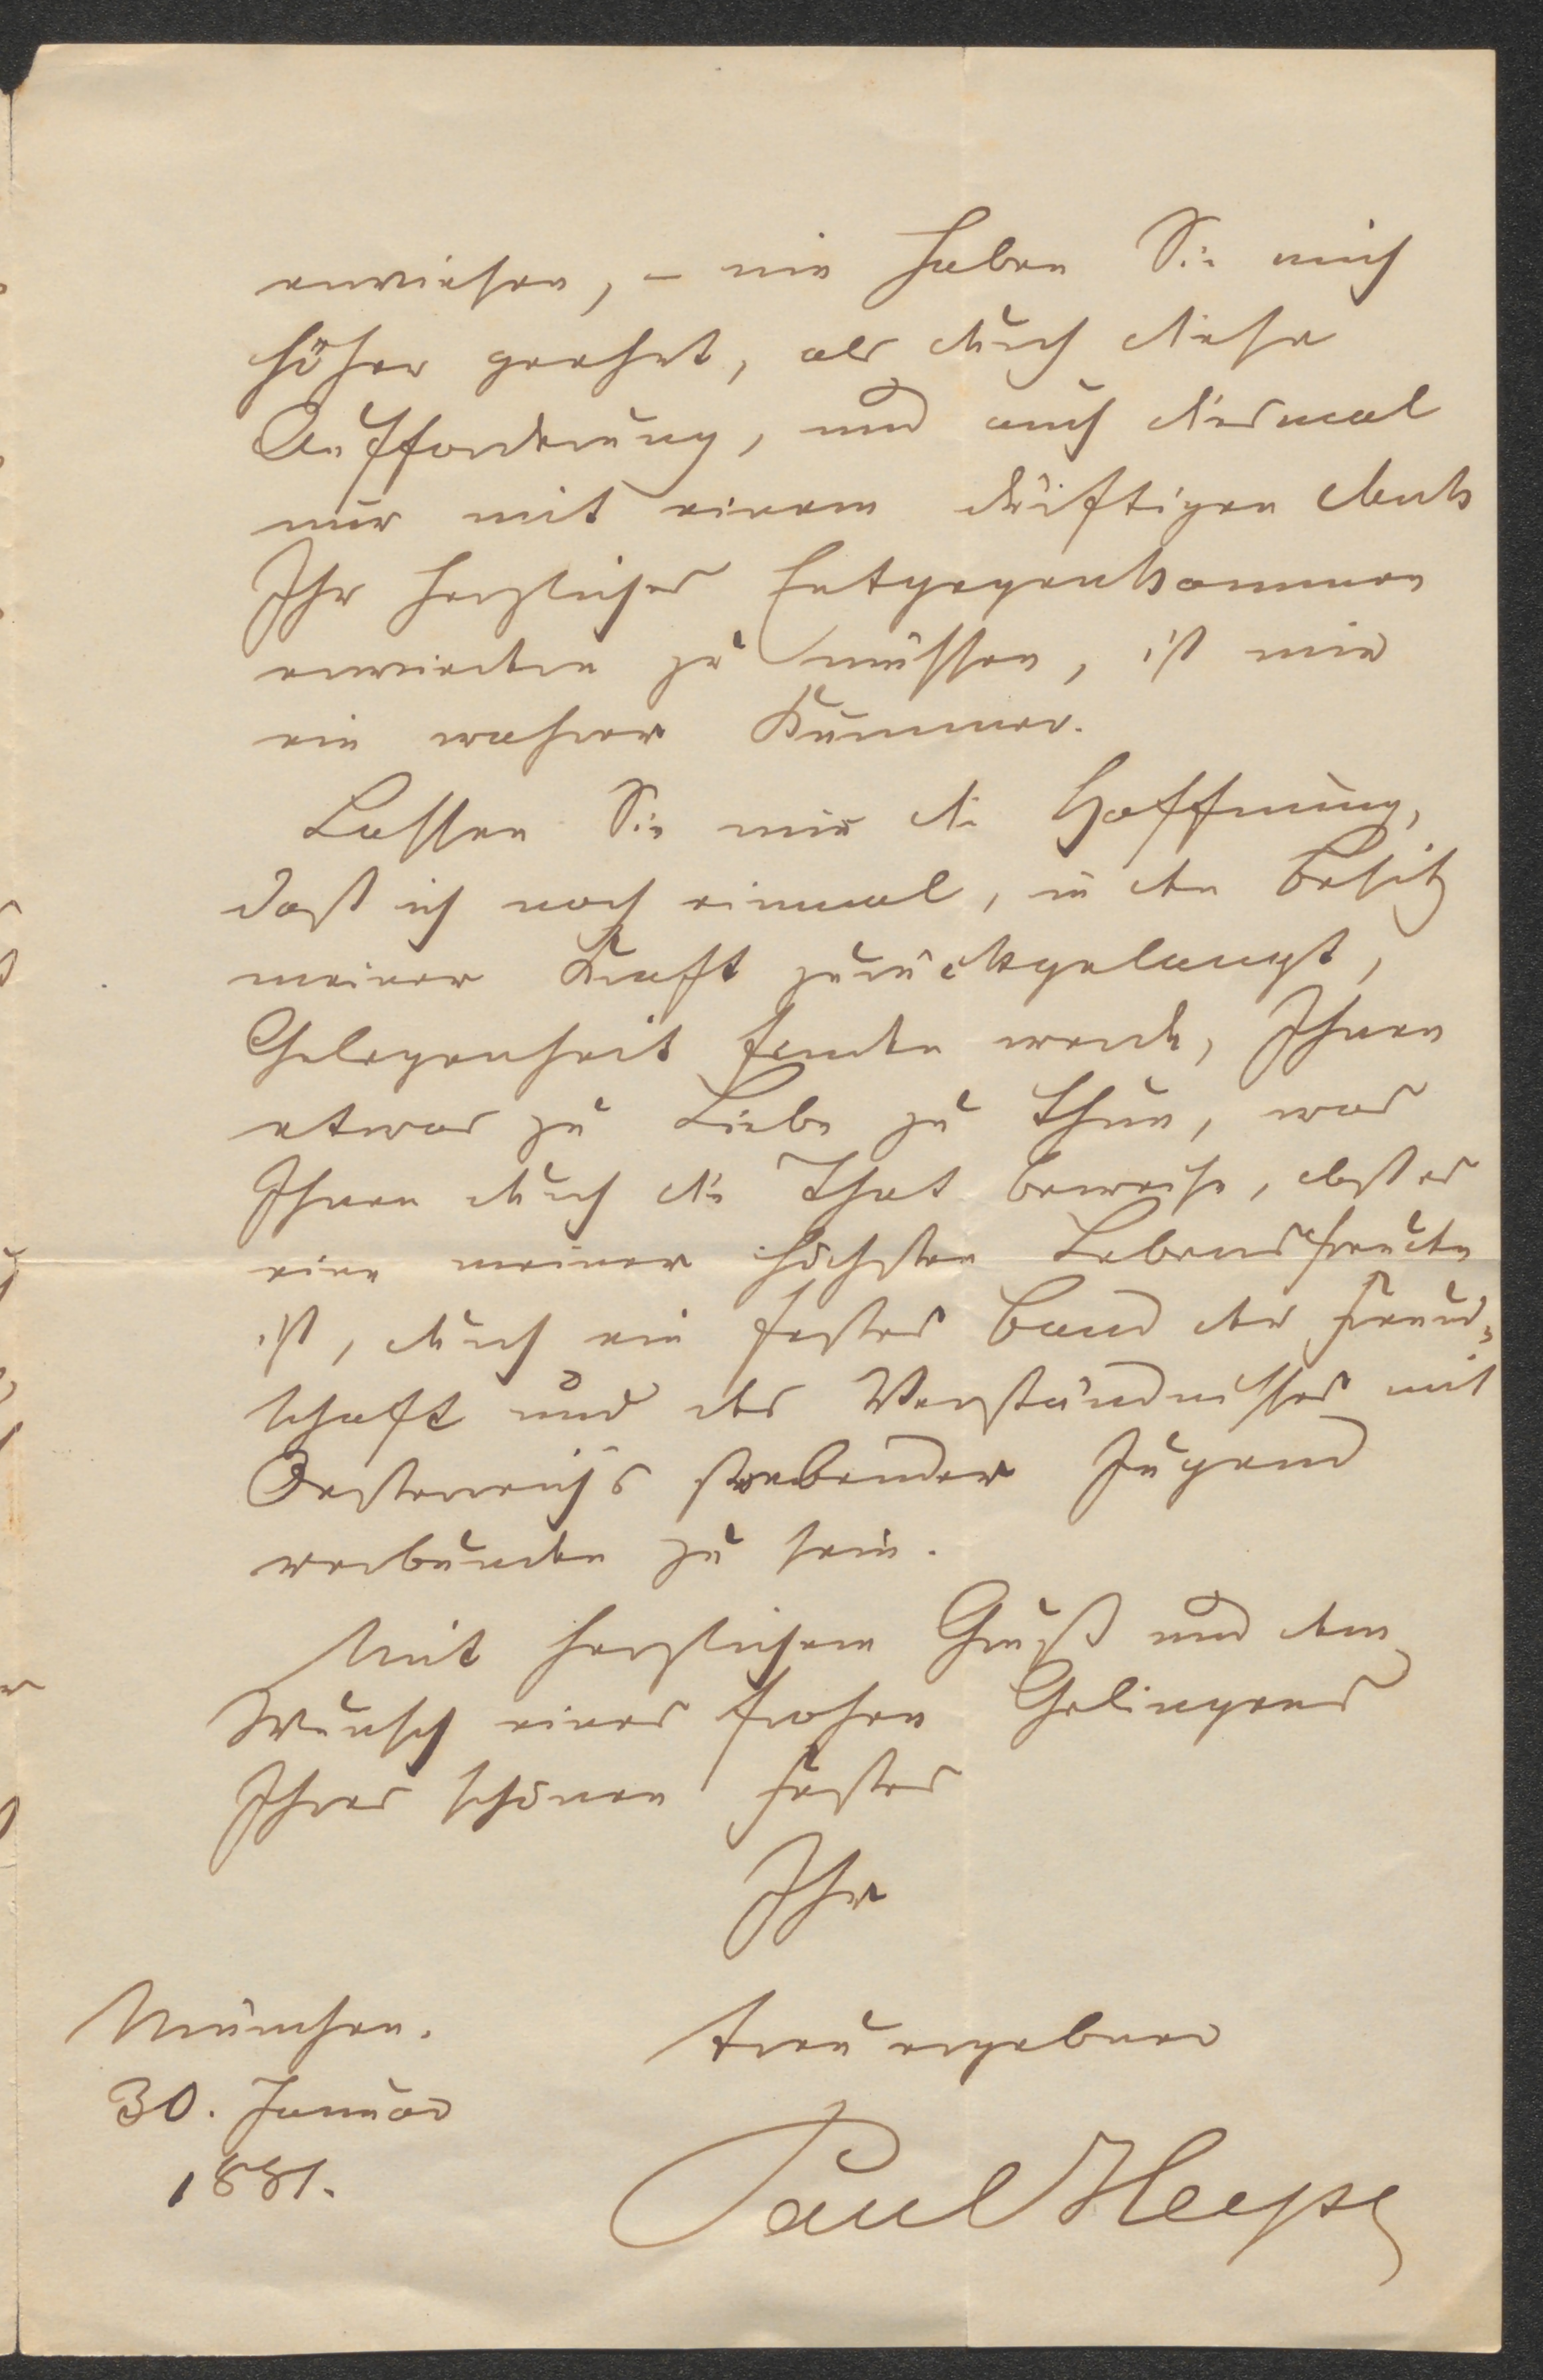 erwiesen, – nie haben Sie mich
höher geehrt, als durch diese
Aufforderung, und auch diesmal
nur mit einem dürftigen Dank
Ihr herzliches Entgegenkommen
erwiedern zu müssen, ist mir
ein wahrer Kummer.
Lassen Sie mir die Hoffnung,
daß ich noch einmal, in den Besitz
meiner Kraft zurückgelangt,
Gelegenheit finden werde, Ihnen
etwas zu Liebe zu thun, was
Ihnen durch die That beweise, daß es
eine meiner höchsten Lebensfreuden
ist, durch ein festes Band der Freund-
schaft und des Verständnisses mit
Oesterreich's strebender Jugend
verbunden zu sein.
Mit herzlichem Gruß und dem
Wunsch eines frohen Gelingens
Ihres schönen Festes
Ihr
treu ergebener
München.
30. Januar
1881.
Paul Heyse